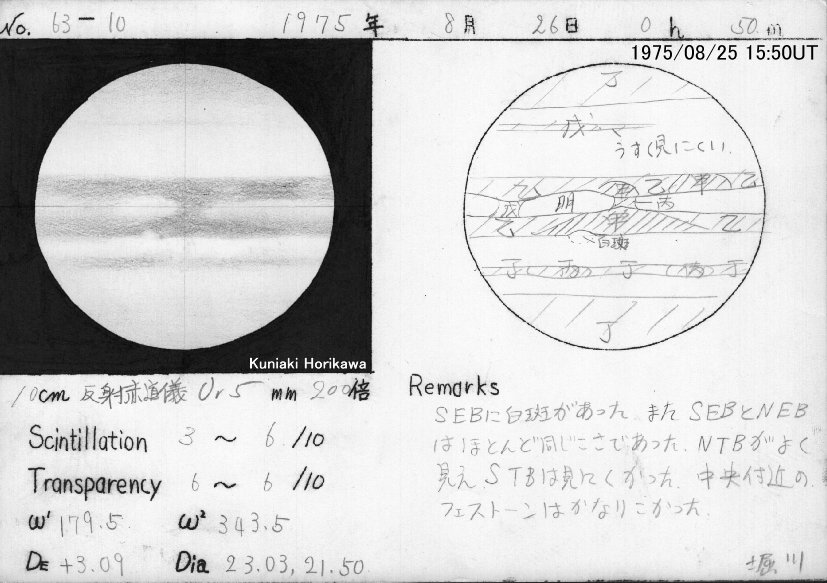 No. 63-10 1975年 8月 26日 0h 50m
1975/08/25 15:50UT
丁
戊
うすく見にくい
乙 甲 乙 甲 乙
戊 明 丙
乙 甲 乙
白斑
丁 丙 丁 丙 丁
丁
Kuniaki Horikawa
10cm 反射赤道儀 Or5 mm 200倍
Scintillation 3 ~ 6/10
Transparency 6 ~ 6/10
ω¹ 179.5 ω² 343.5
DE +3.09 Dia 23.03, 21.50
Remarks
SEBに白斑があった。またSEBとNEB
はほとんど同じこさであった。NTBがよく
見えSTBは見にくかった。中央付近の
フェストーンはかなりこかった。
堀川